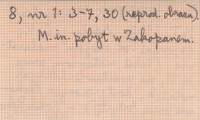 8, nr 1: 3-7, 30 (reprod. obrazu).
M. in. pobyt w Zakopanem.